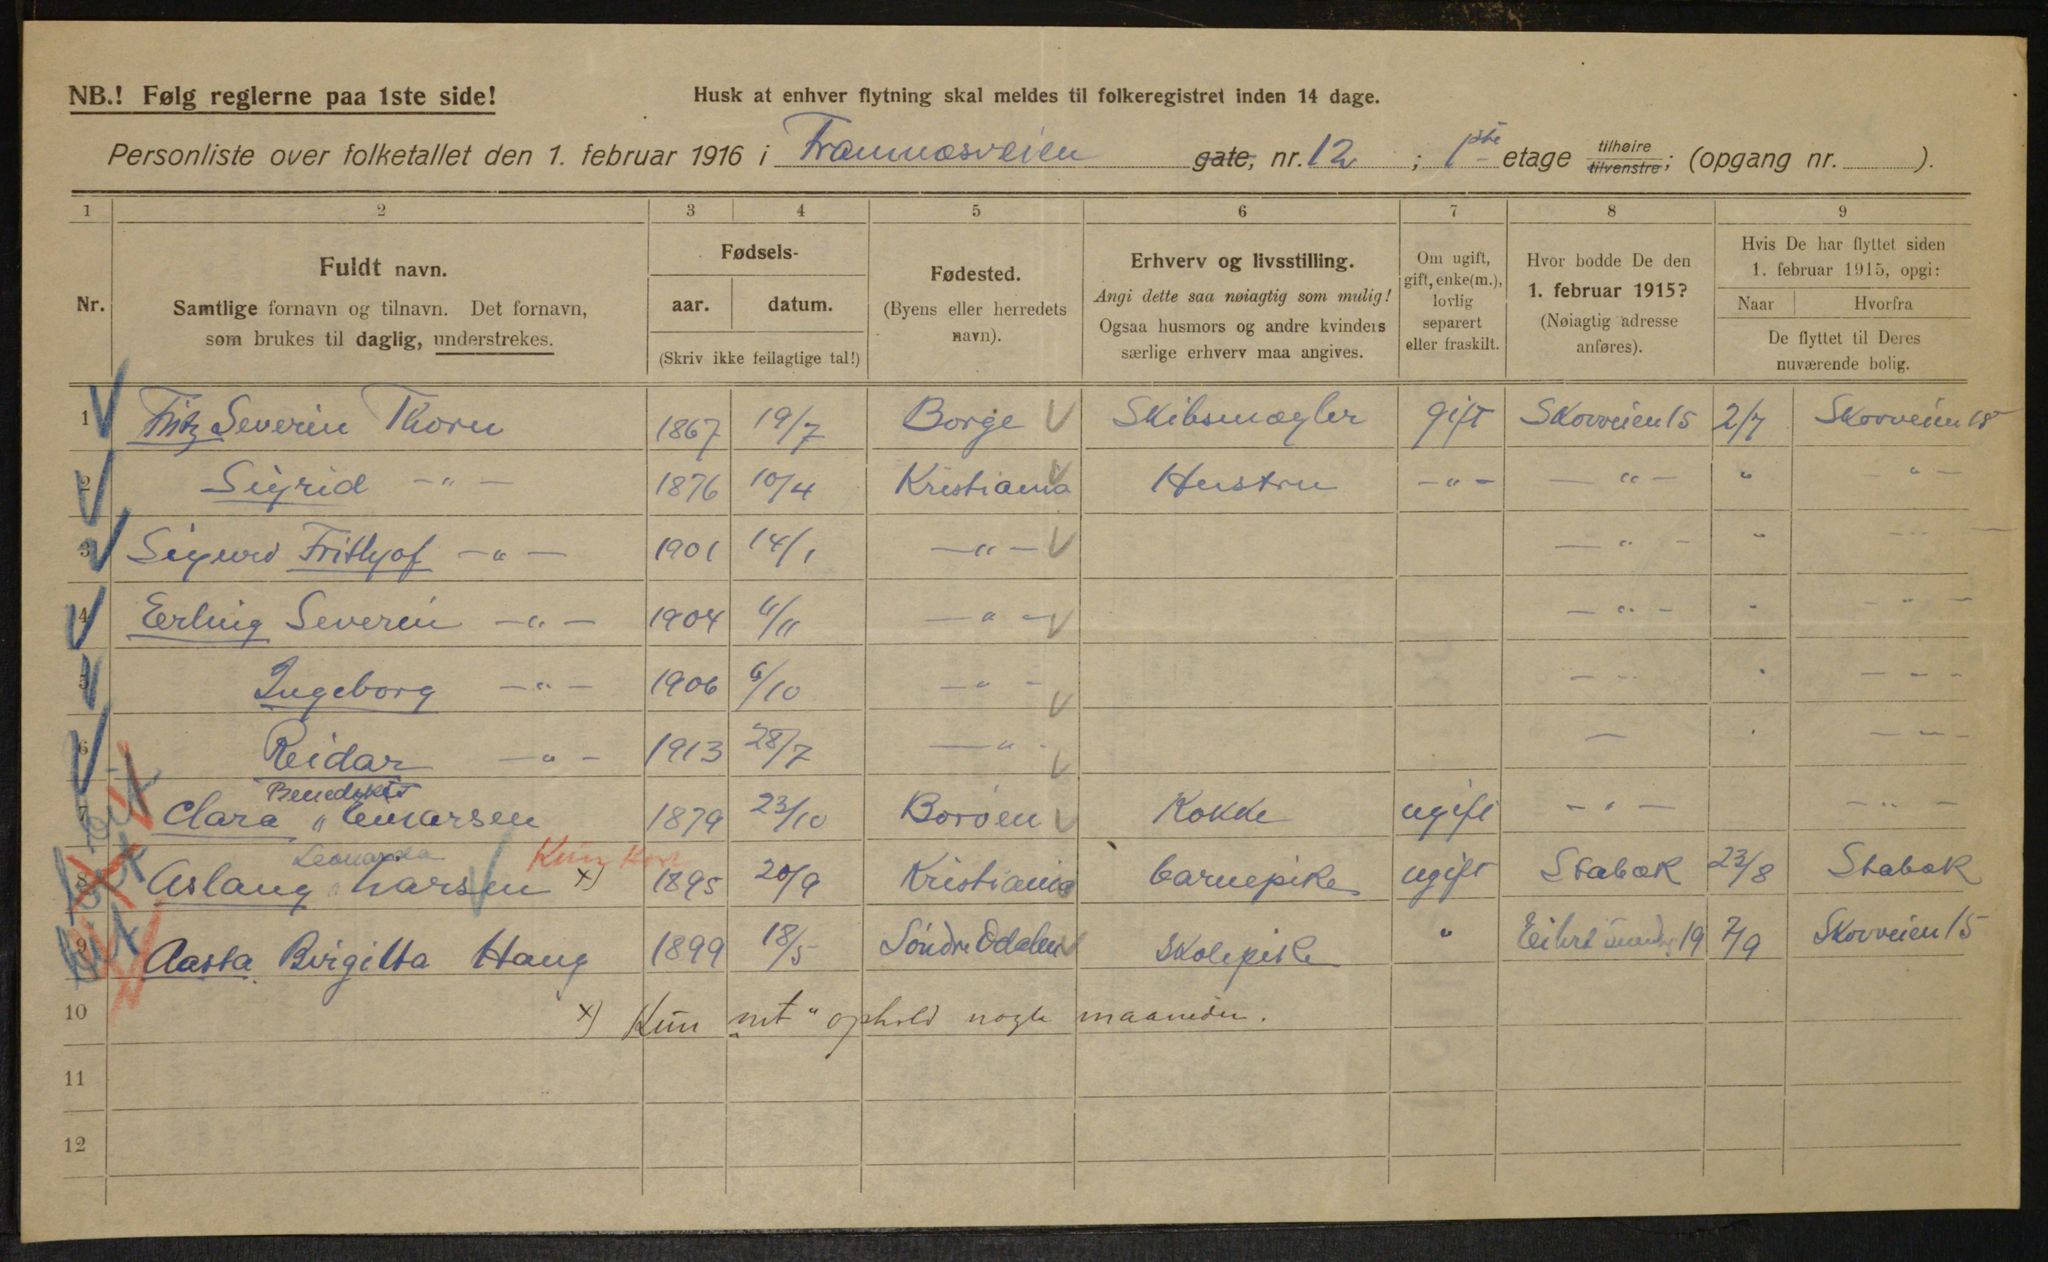 NB.! Følg reglerne paa 1ste side!
Husk at enhver flytning skal meldes til folkeregistret inden 14 dage.
Personliste over folketallet den 1. februar 1916 i Framnæsveien gate, nr. 12 ; 1ste etage tilhøire/tilvenstre; (opgang nr. ).
1 2 3 4 5 6 7 8 9
Nr.
Fuldt navn.
Samtlige fornavn og tilnavn. Det fornavn,
som brukes til daglig, understrekes.
Fødsels-
aar. datum.
(Skriv ikke feilagtige tal!)
Fødested.
(Byens eller herredets
navn).
Erhverv og livsstilling.
Angi dette saa nøiagtig som mulig!
Ogsaa husmors og andre kvinders
særlige erhverv maa angives.
Om ugift,
gift, enke(m.),
lovlig
separert
eller fraskilt.
Hvor bodde De den
1. februar 1915?
(Nøiagtig adresse
anføres).
Hvis De har flyttet siden
1. februar 1915, opgi:
Naar Hvorfra
De flyttet til Deres
nuværende bolig.
1 Fritz Severin Thorn 1867 19/7 Borge Skibsmægler gift Skovveien 15 2/7 Skovveien 15
2 Sigrid -"- 1876 10/4 Kristiania Hustru -"- -"- " -"-
3 Sigurd Frithjof -"- 1901 14/1 -"- -"- " -"-
4 Erling Severin -"- 1904 6/11 -"- -"- " -"-
5 Ingeborg -"- 1906 6/10 -"- -"- " -"-
6 Reidar -"- 1913 28/7 -"- - " -"-
Benedikte
7 Clara " Einarsen 1879 23/10 Borøen Kokke ugift -"- -"-
Leonarda Kun
8 Aslaug Larsen x) 1895 20/9 Kristiania barnepike ugift Stabæk 23/8 Stabæk
9 Aasta Birgitta Haug 1899 18/5 Søndre Odalen Skolepike " 19 7/9 Skovveien 15
10 x) Kun mt. ophold nogle maaneder.
11
12